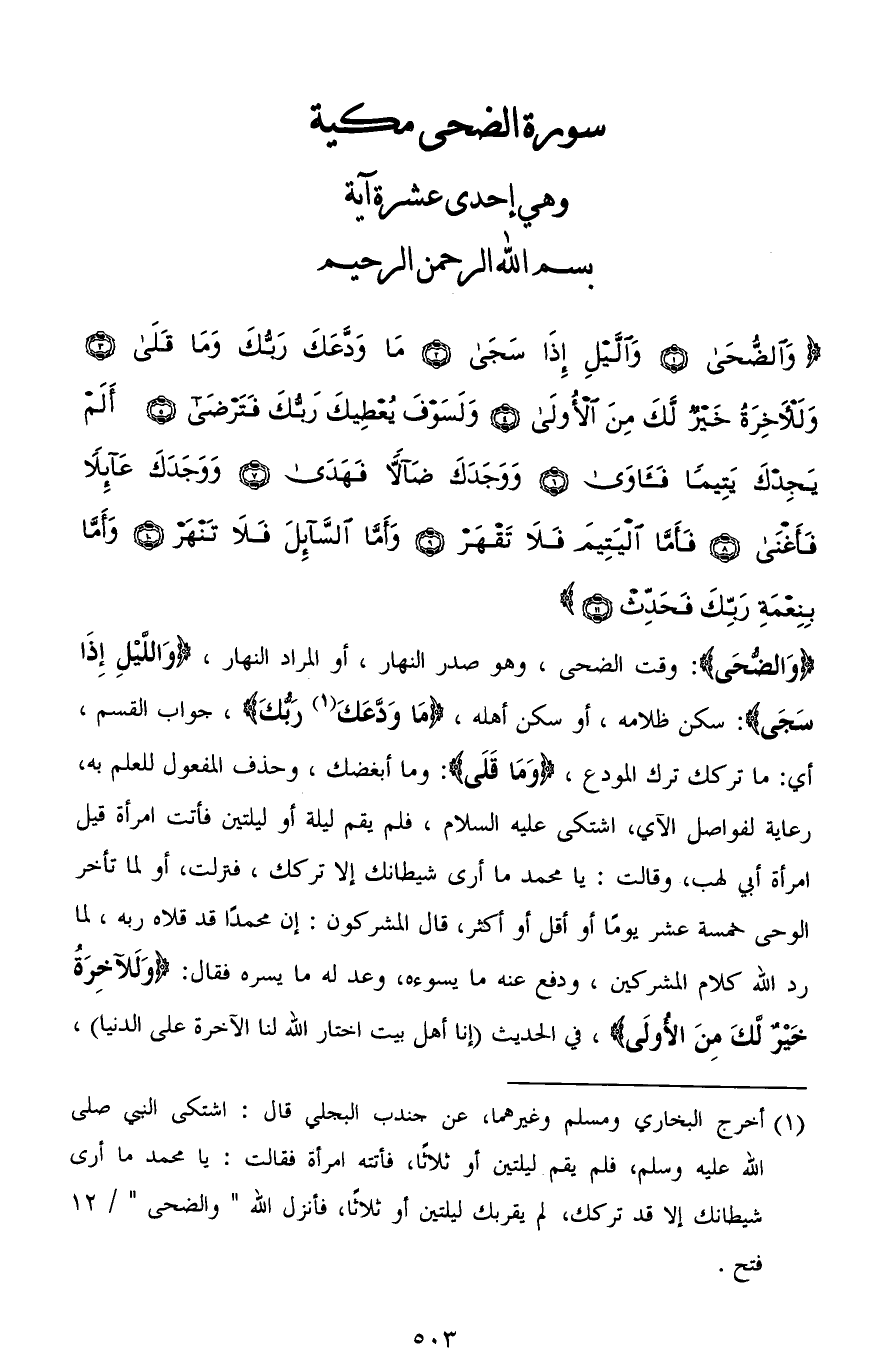 سورة الضحى مكية
وهي إحدى عشرة آية
بسم الله الرحمن الرحيم
﴿ وَٱلضُّحَىٰ ١ وَٱلَّيْلِ إِذَا سَجَىٰ ٢ مَا وَدَّعَكَ رَبُّكَ وَمَا قَلَىٰ ٣
وَلَلْأَخِرَةُ خَيْرٌ لَّكَ مِنَ ٱلْأُولَىٰ ٤ وَلَسَوْفَ يُعْطِيكَ رَبُّكَ فَتَرْضَىٰٓ ٥ أَلَمْ
يَجِدْكَ يَتِيمًا فَـَٔاوَىٰ ٦ وَوَجَدَكَ ضَآلًّا فَهَدَىٰ ٧ وَوَجَدَكَ عَآئِلًا
فَأَغْنَىٰ ٨ فَأَمَّا ٱلْيَتِيمَ فَلَا تَقْهَرْ ٩ وَأَمَّا ٱلسَّآئِلَ فَلَا تَنْهَرْ ١٠ وَأَمَّا
بِنِعْمَةِ رَبِّكَ فَحَدِّثْ ١١ ﴾
﴿وَالضُّحَى﴾: وقت الضحى ، وهو صدر النهار ، أو المراد النهار ، ﴿وَاللَّيْلِ إِذَا
سَجَى﴾: سكن ظلامه ، أو سكن أهله ، ﴿مَا وَدَّعَكَ(١) رَبُّكَ﴾ ، جواب القسم ،
أي: ما تركك ترك المودع ، ﴿وَمَا قَلَى﴾: وما أبغضك ، وحذف المفعول للعلم به،
رعاية لفواصل الآي، اشتكى عليه السلام ، فلم يقم ليلة أو ليلتين فأتت امرأة قيل
امرأة أبي لهب، وقالت : يا محمد ما أرى شيطانك إلا تركك ، فنزلت، أو لما تأخر
الوحى خمسة عشر يومًا أو أقل أو أكثر، قال المشركون : إن محمدًا قد قلاه ربه ، لما
رد الله كلام المشركين ، ودفع عنه ما يسوءه، وعد له ما يسره فقال: ﴿وَلَلآخِرَةُ
خَيْرٌ لَّكَ مِنَ الأُولَى﴾ ، في الحديث (إنا أهل بيت اختار الله لنا الآخرة على الدنيا) ،
(١) أخرج البخاري ومسلم وغيرهما، عن جندب البجلي قال : اشتكى النبي صلى
الله عليه وسلم، فلم يقم ليلتين أو ثلاثًا، فأتته امرأة فقالت : يا محمد ما أرى
شيطانك إلا قد تركك، لم يقربك ليلتين أو ثلاثًا، فأنزل الله " والضحى " / ١٢
فتح .
٥٠٣